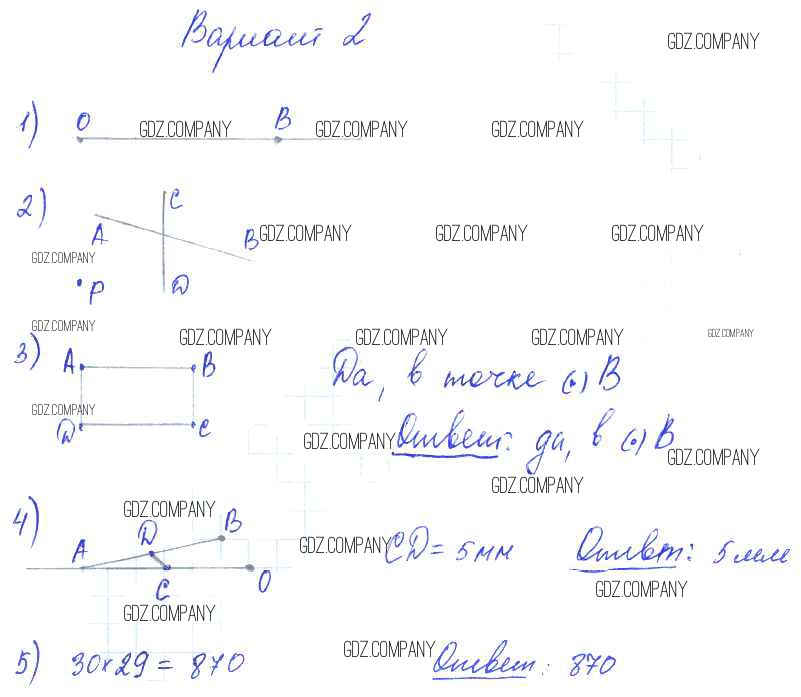 Вариант 2
GDZ.COMPANY
1) O B
GDZ.COMPANY GDZ.COMPANY GDZ.COMPANY
2) C
A B GDZ.COMPANY GDZ.COMPANY GDZ.COMPANY
GDZ.COMPANY
P D
GDZ.COMPANY GDZ.COMPANY GDZ.COMPANY GDZ.COMPANY GDZ.COMPANY
3) A B Да, в точке (•) B
GDZ.COMPANY
D C GDZ.COMPANY Ответ: да, в (•) B
GDZ.COMPANY
GDZ.COMPANY
4) GDZ.COMPANY
D B
A C O GDZ.COMPANY CD = 5 мм Ответ: 5 мм
GDZ.COMPANY
GDZ.COMPANY
5) 30 × 29 = 870 GDZ.COMPANY Ответ: 870